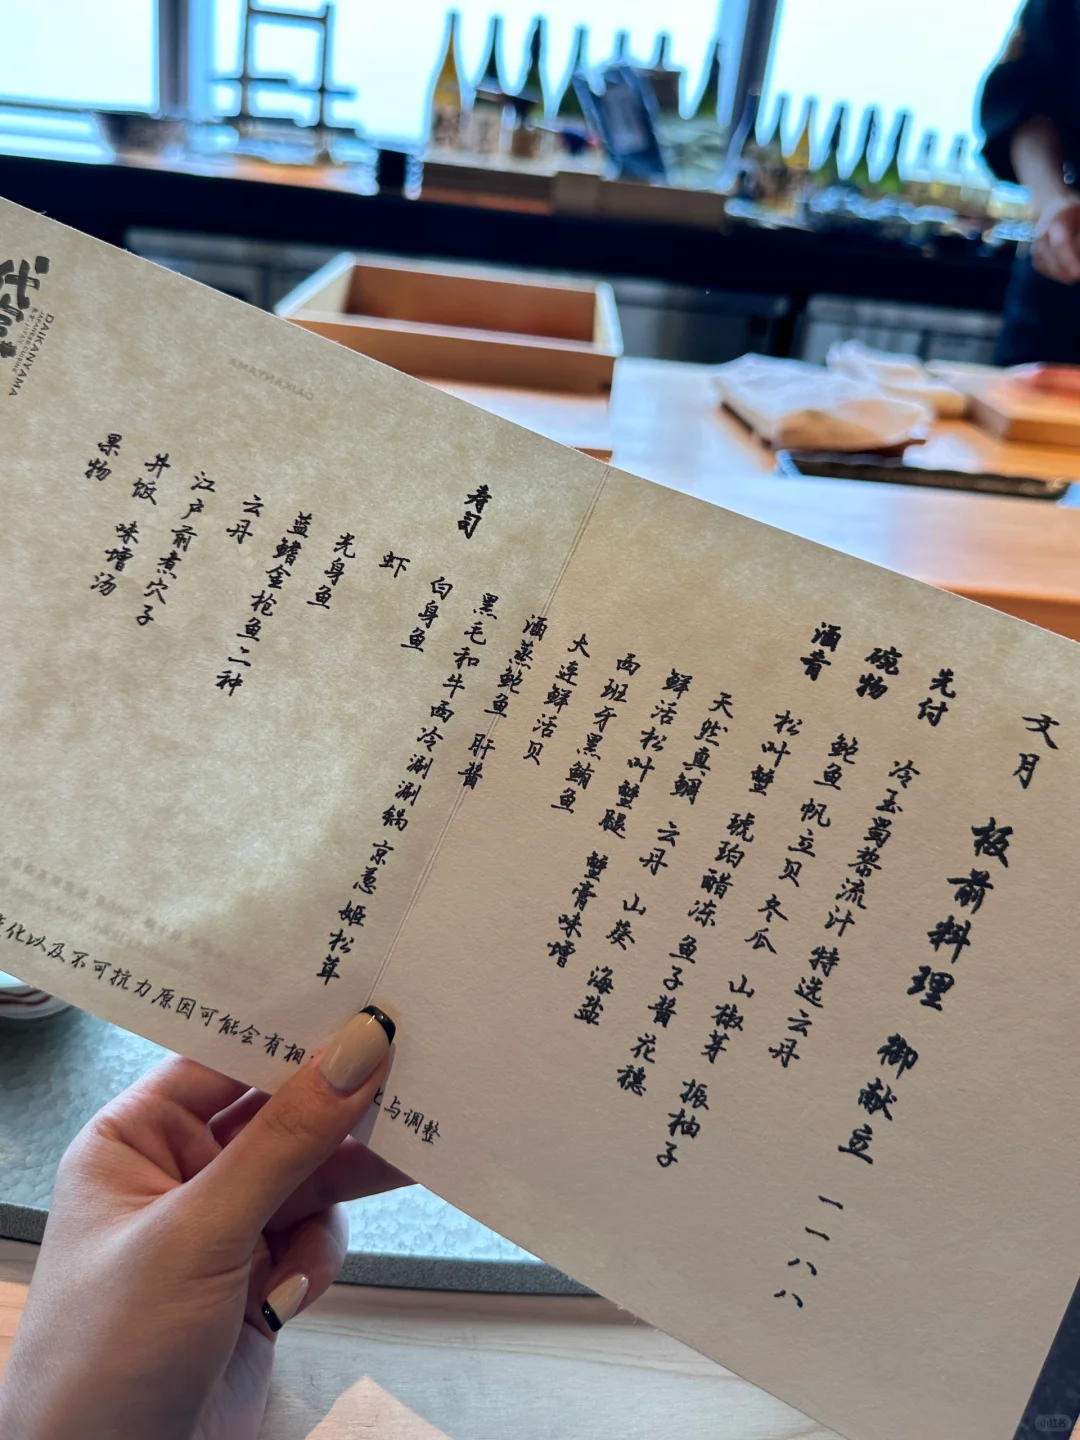 文月 板前料理 御献立 一一八八
先付 冷玉蜀黎流汁 特选云丹
碗物 鲍鱼 帆立贝 冬瓜 山椒芽 振柚子
酒肴 松叶蟹 琥珀醋冻 鱼子酱 花穗
天然真鲷 云丹 山葵 海盐
鲜活松叶蟹腿 蟹膏味噌
西班牙黑鲔鱼
大连鲜活贝
酒蒸鲍鱼 肝酱
黑毛和牛西冷涮涮锅 京葱 姬松茸
寿司 白身鱼
虾
光身鱼
蓝鳍金枪鱼二种
云丹
江户前煮穴子
丼饭 味噌汤
果物
化以及不可抗力原因可能会有相 与调整
DAIKANYAMA
小红书